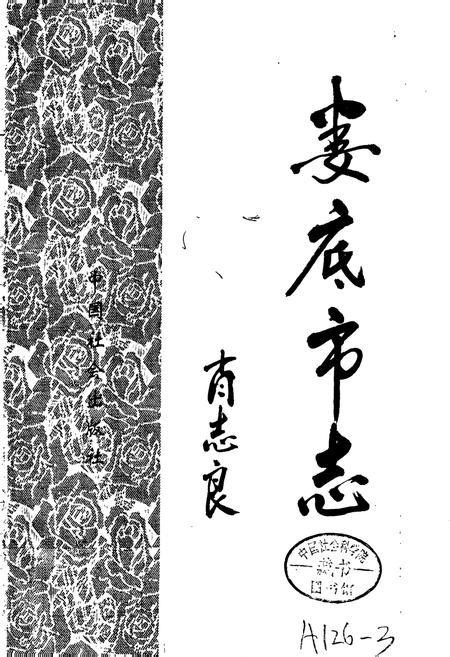 娄底市志
肖志良
中国社会出版社
中国社会科学院
藏书
图书馆
A126-3